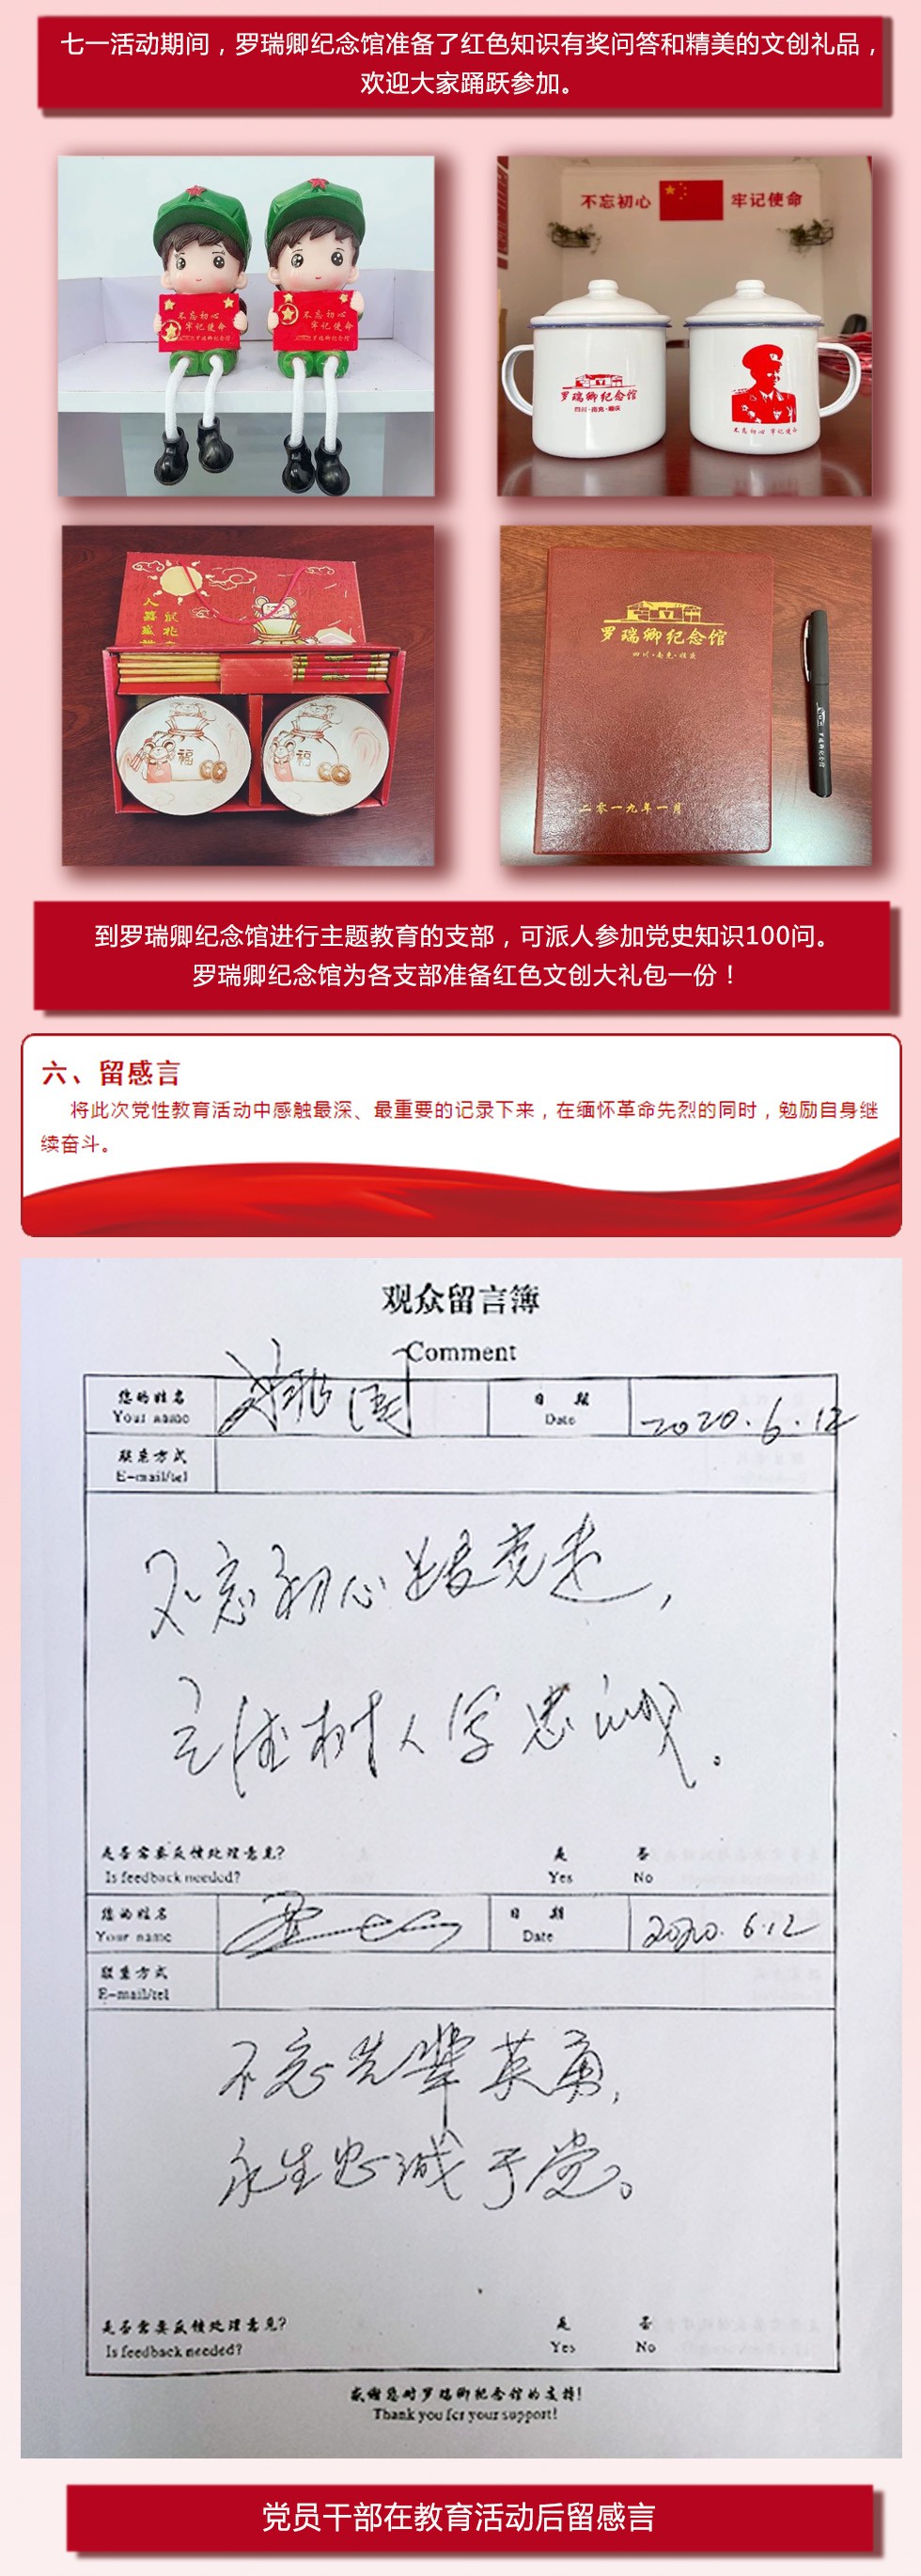 七一活动期间，罗瑞卿纪念馆准备了红色知识有奖问答和精美的文创礼品，
欢迎大家踊跃参加。
不忘初心
牢记使命
罗瑞卿纪念馆
不忘初心
牢记使命
罗瑞卿纪念馆
不忘初心 牢记使命
罗瑞卿纪念馆
四川·南充·顺庆
不忘初心 牢记使命
福
福
罗瑞卿纪念馆
四川·南充·顺庆
二零一九年一月
罗瑞卿纪念馆
到罗瑞卿纪念馆进行主题教育的支部，可派人参加党史知识100问。
罗瑞卿纪念馆为各支部准备红色文创大礼包一份！
六、留感言
将此次党性教育活动中感触最深、最重要的记录下来，在缅怀革命先烈的同时，勉励自身继
续奋斗。
观众留言簿
Comment
您的姓名 日 期
Your name Date 2020.6.12
联系方式
E-mail/tel
不忘初心跟党走，
立德树人写忠诚。
是否需要反馈处理意见? 是 否
Is feedback needed? Yes No
您的姓名 日 期
Your name Date 2020.6.12
联系方式
E-mail/tel
不忘先辈英勇，
永生忠诚于党。
是否需要反馈处理意见? 是 否
Is feedback needed? Yes No
感谢您对罗瑞卿纪念馆的支持!
Thank you for your support!
党员干部在教育活动后留感言